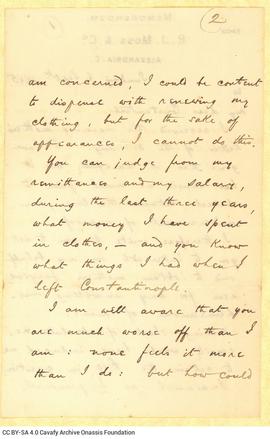 (2
am concerned, I could be content
to dispense with renewing my
clothing, but for the sake of
appearances, I cannot do this.
You can judge from my
remittances and my salary,
during the last three years,
what money I have spent
in clothes, — and you know
what things I had when I
left Constantinople.
I am well aware that you
are much worse off than I
am: none feels it more
than I do: but how could
CC BY-SA 4.0 Cavafy Archive Onassis Foundation